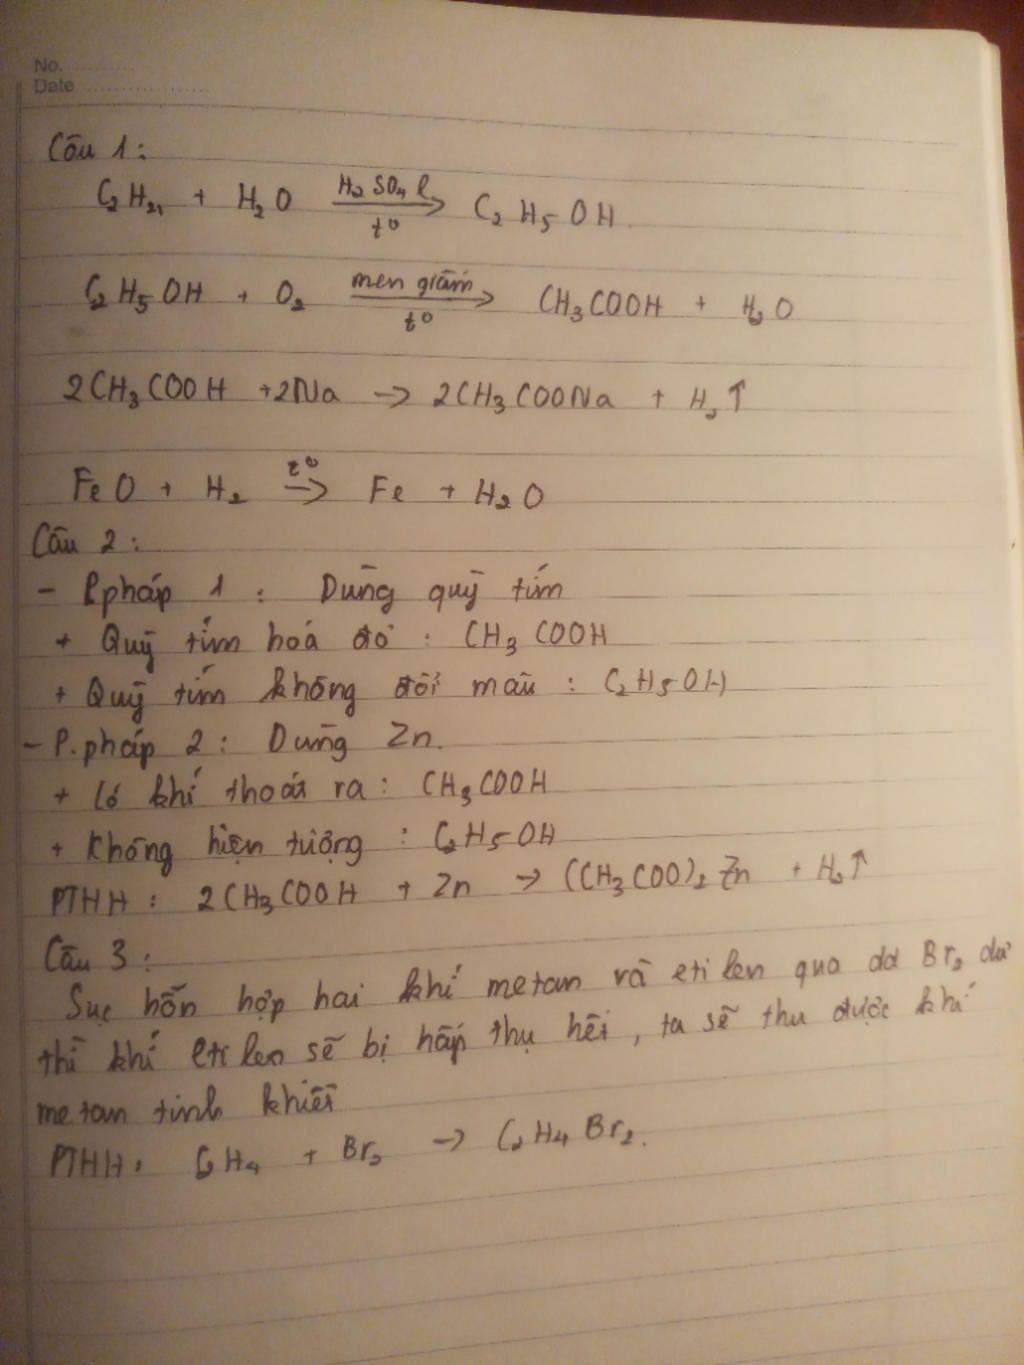 No. ............
Date ......................
Câu 1:
C₂H₄ + H₂O \xrightarrow[t⁰]{H₂SO₄ l} C₂H₅OH.
C₂H₅OH + O₂ \xrightarrow[t⁰]{men giấm} CH₃COOH + H₂O
2CH₃COOH +2Na → 2CH₃COONa + H₂↑
FeO + H₂ \xrightarrow{t⁰} Fe + H₂O
Câu 2:
- P.pháp 1 : Dùng quỳ tím
+ Quỳ tím hoá đỏ : CH₃COOH
+ Quỳ tím không đổi màu : C₂H₅OH
- P.pháp 2 : Dùng Zn.
+ Có khí thoát ra : CH₃COOH
+ Không hiện tượng : C₂H₅OH
PTHH : 2CH₃COOH + Zn → (CH₃COO)₂Zn + H₂↑
Câu 3 :
Sục hỗn hợp hai khí metan và etilen qua dd Br₂ dư
thì khí etilen sẽ bị hấp thụ hết, ta sẽ thu được khí
metan tinh khiết
PTHH: C₂H₄ + Br₂ → C₂H₄Br₂.